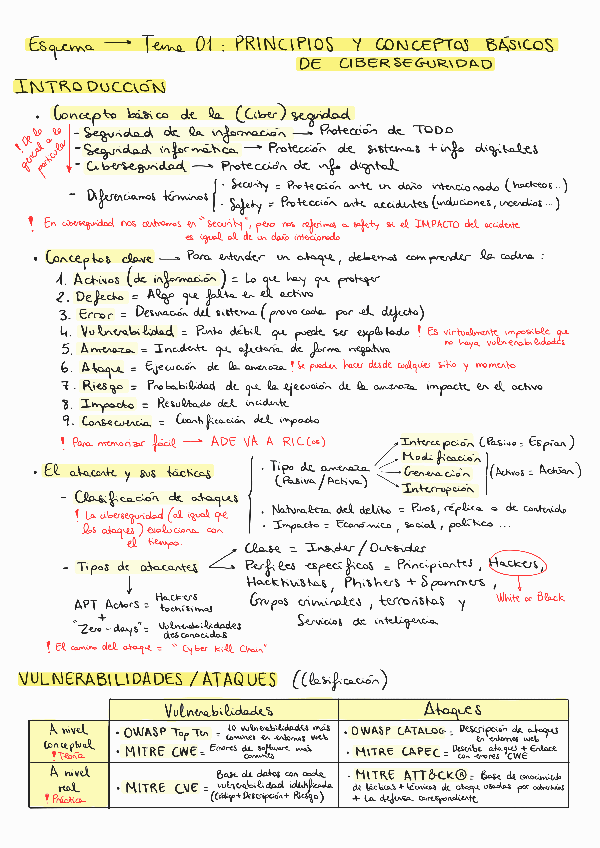 Esquema → Tema 01: PRINCIPIOS Y CONCEPTOS BÁSICOS
DE CIBERSEGURIDAD
INTRODUCCIÓN
• Concepto básico de la (Ciber)seguridad
! De lo general a lo particular
- Seguridad de la información → Protección de TODO
- Seguridad informática → Protección de sistemas + info digitales
- Ciberseguridad → Protección de info digital
- Diferenciamos términos
· Security = Protección ante un daño intencionado (hackeos...)
· Safety = Protección ante accidentes (inundaciones, incendios...)
! En ciberseguridad nos centramos en "Security", pero nos referimos a safety si el IMPACTO del accidente
es igual al de un daño intencionado
• Conceptos clave → Para entender un ataque, debemos comprender la cadena:
1. Activos (de información) = Lo que hay que proteger
2. Defecto = Algo que falta en el activo
3. Error = Desviación del sistema (provocada por el defecto)
4. Vulnerabilidad = Punto débil que puede ser explotado ! Es virtualmente imposible que
no haya vulnerabilidades
5. Amenaza = Incidente que afectaría de forma negativa
6. Ataque = Ejecución de la amenaza ! Se pueden hacer desde cualquier sitio y momento
7. Riesgo = Probabilidad de que la ejecución de la amenaza impacte en el activo
8. Impacto = Resultado del incidente
9. Consecuencia = Cuantificación del impacto
! Para memorizar fácil → ADE VA A RIC(os)
• El atacante y sus tácticas
- Clasificación de ataques
! La ciberseguridad (al igual que
los ataques) evoluciona con
el tiempo
· Tipo de amenaza
(Pasiva/Activa)
Intercepción (Pasivo = Espían)
Modificación
Generación
Interrupción
(Activos = Actúan)
· Naturaleza del delito = Puros, réplica o de contenido
· Impacto = Económico, social, político ...
- Tipos de atacantes
Clase = Insider/Outsider
Perfiles específicos = Principiantes, Hackers,
Hacktivistas, Phishers + Spammers,
Grupos criminales, terroristas y
Servicios de inteligencia
White or Black
APT Actors = Hackers
tochísimos
+
"Zero-days" = Vulnerabilidades
desconocidas
! El camino del ataque = "Cyber Kill Chain"
VULNERABILIDADES/ATAQUES (Clasificación)
Vulnerabilidades
Ataques
A nivel
conceptual
! Teoría
• OWASP Top Ten = 10 vulnerabilidades más
comunes en entornos web
• MITRE CWE = Errores de software más
comunes
• OWASP CATALOG = Descripción de ataques
en entornos web
• MITRE CAPEC = Describe ataques + Enlace
con errores CWE
A nivel
real
! Práctica
• MITRE CVE = Base de datos con cada
vulnerabilidad identificada
(Código + Descripción + Riesgo)
• MITRE ATT&CK® = Base de conocimiento
de tácticas + técnicas de ataque usadas por adversarios
+ La defensa correspondiente